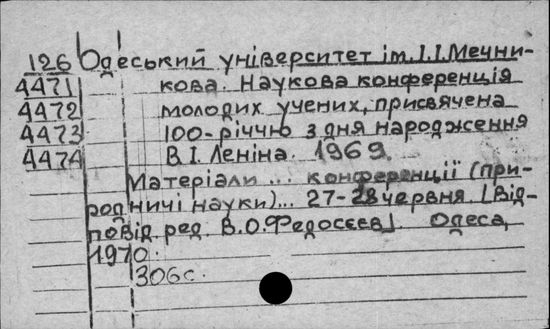 126 Одеський університет ім. І.І. Мечни-
4471 кова. Наукова конференція
4472 молодих учених, присвячена
4473 100-річчю з дня народження
4474 В.І. Леніна. 1969.
Матеріали ... конференції (при-
родничі науки)... 27-28 червня. [Від-
повід. ред. В.О. Федосєєв]. Одеса,
1970.
306с.